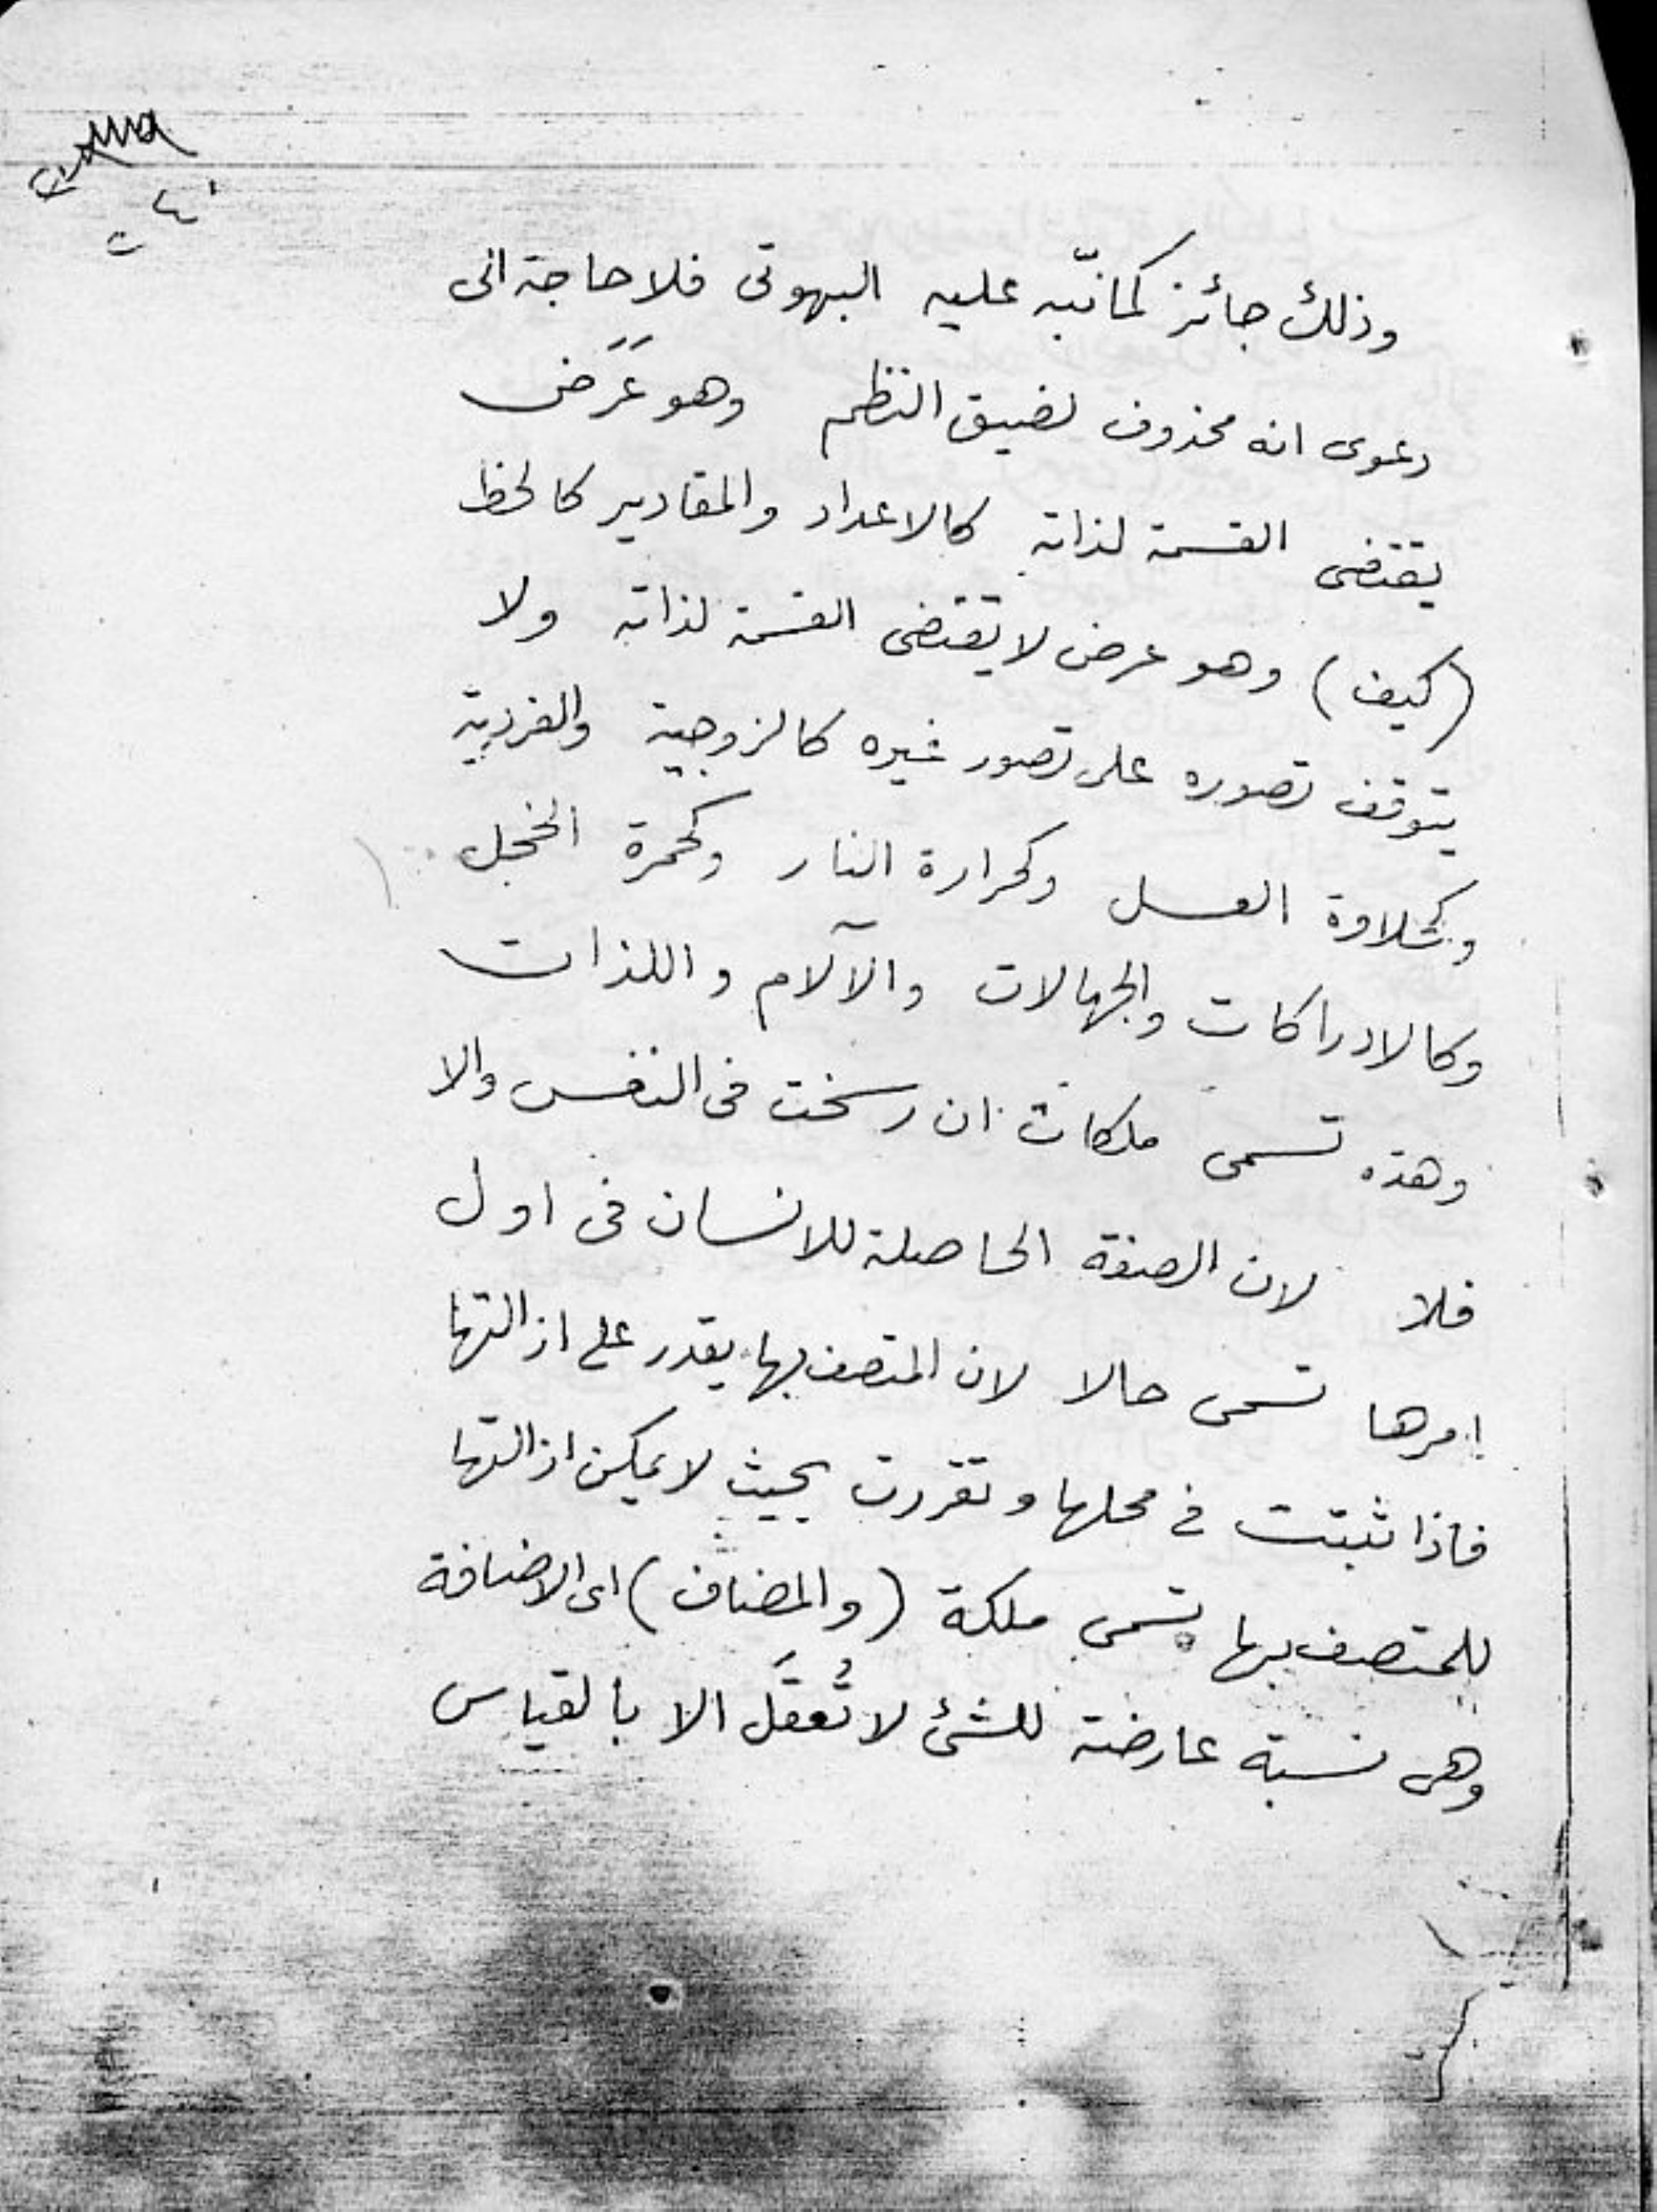 ٤٠
وذلك جائز كما نبّه عليه البهوتى فلا حاجة الى
دعوى انه محذوف لضيق النظم وهو عَرَض
يقتضى القسمة لذاته كالاعداد والمقادير كالخط
(كيف) وهو عرض لا يقتضى القسمة لذاته ولا
يتوقف تصوره على تصور غيره كالزوجية والفردية
وكحلاوة العسل وكحرارة النار وكحمرة الخجل
وكالادراكات والجهالات والآلام واللذات
وهذه تسمى ملكات ان رسخت فى النفس والا
فلا لان الصفة الحاصلة للانسان فى اول
امرها تسمى حالا لان المتصف بها يقدر على ازالتها
فاذا ثبتت في محلها وتقررت بحيث لا يمكن ازالتها
للمتصف بها تسمى ملكة (والمضاف) اى الاضافة
وهى نسبة عارضة للشئ لا تُعقَل الا بالقياس